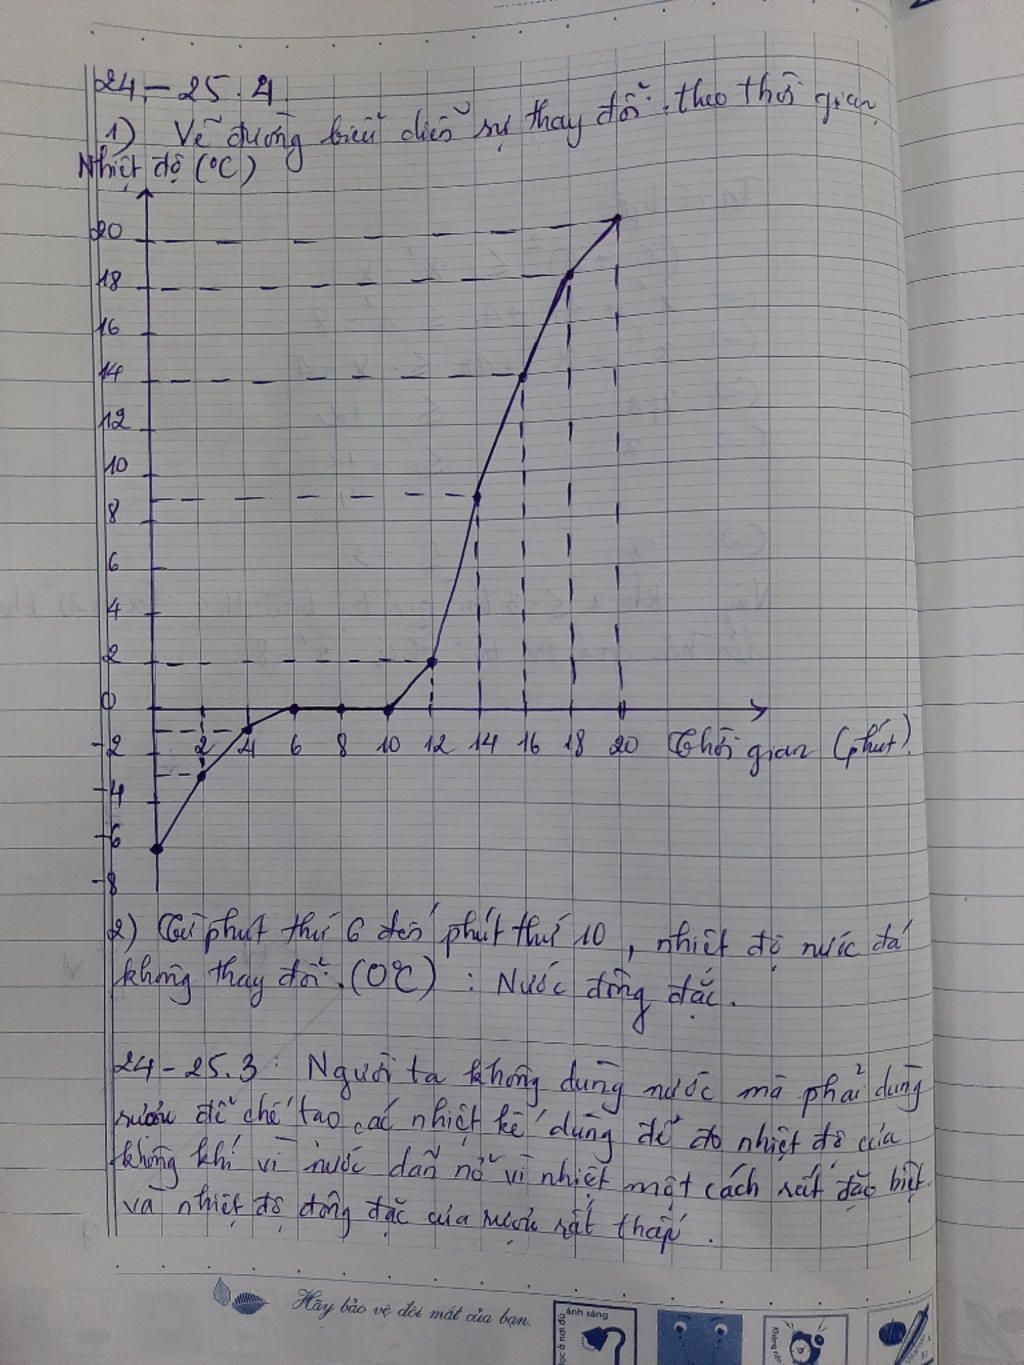 24-25.4
1) Vẽ đường biểu diễn sự thay đổi theo thời gian
Nhiệt độ (°C)
20
18
16
14
12
10
8
6
4
2
0
-2
-4
-6
-8
2 4 6 8 10 12 14 16 18 20 Thời gian (phút).
2) Từ phút thứ 6 đến phút thứ 10, nhiệt độ nước đá
không thay đổi. (0°C) : Nước đông đặc.
24-25.3: Người ta không dùng nước mà phải dùng
rượu để chế tạo các nhiệt kế dùng để đo nhiệt độ của
không khí vì nước dãn nở vì nhiệt một cách rất đặc biệt
và nhiệt độ đông đặc của rượu rất thấp.
Hãy bảo vệ đôi mắt của bạn.
ánh sáng